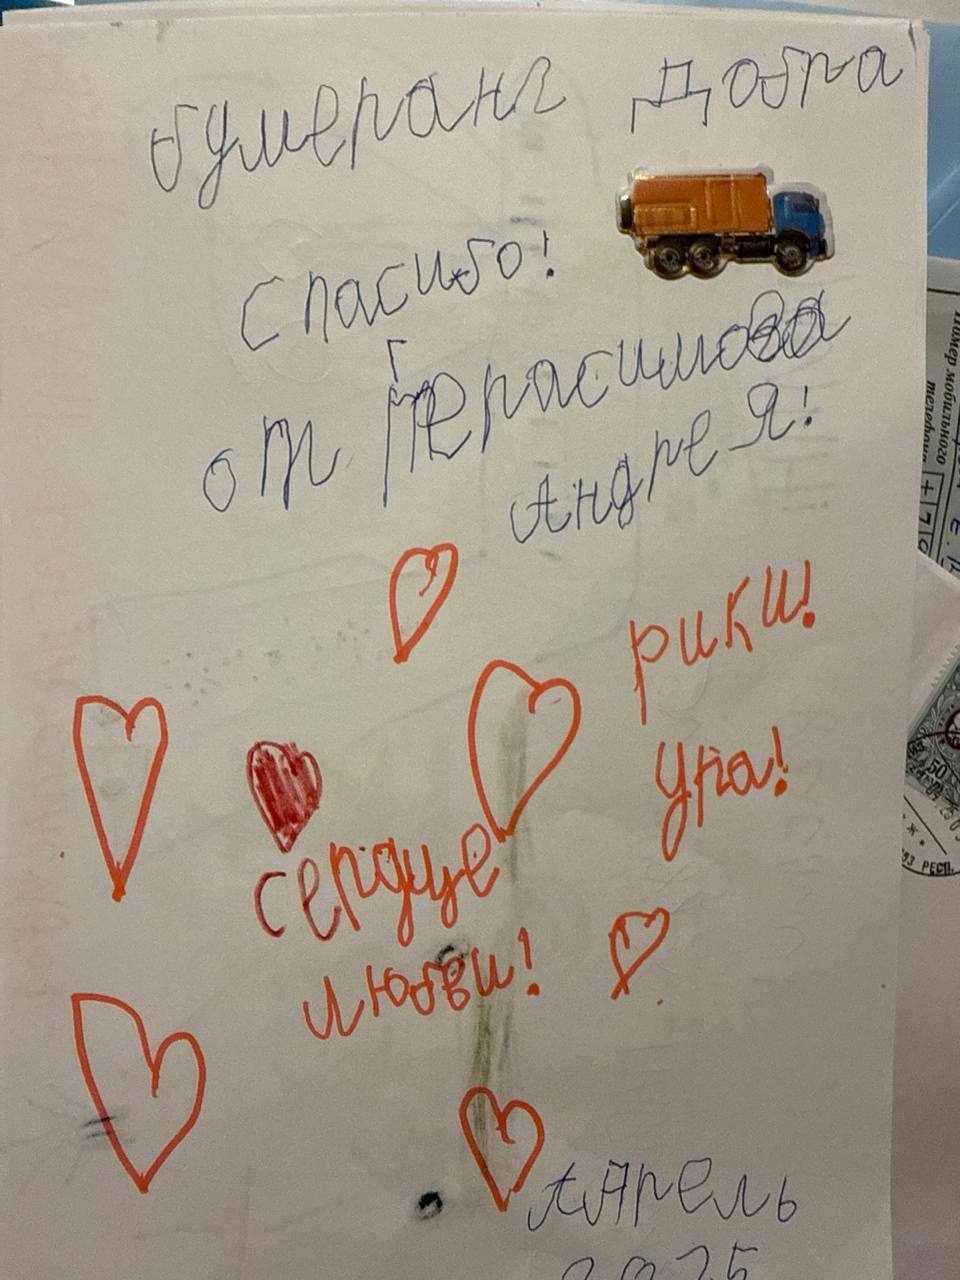 бумеранг Добра
спасибо!
от Герасимова
Андрея!
рики!
ура!
сердце
любви!
Апрель
2025
Номер мобильного
телефона
+ 7
50
РЕСП.